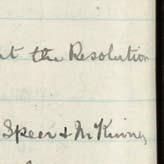 t the Resolution
Speer & McKinney